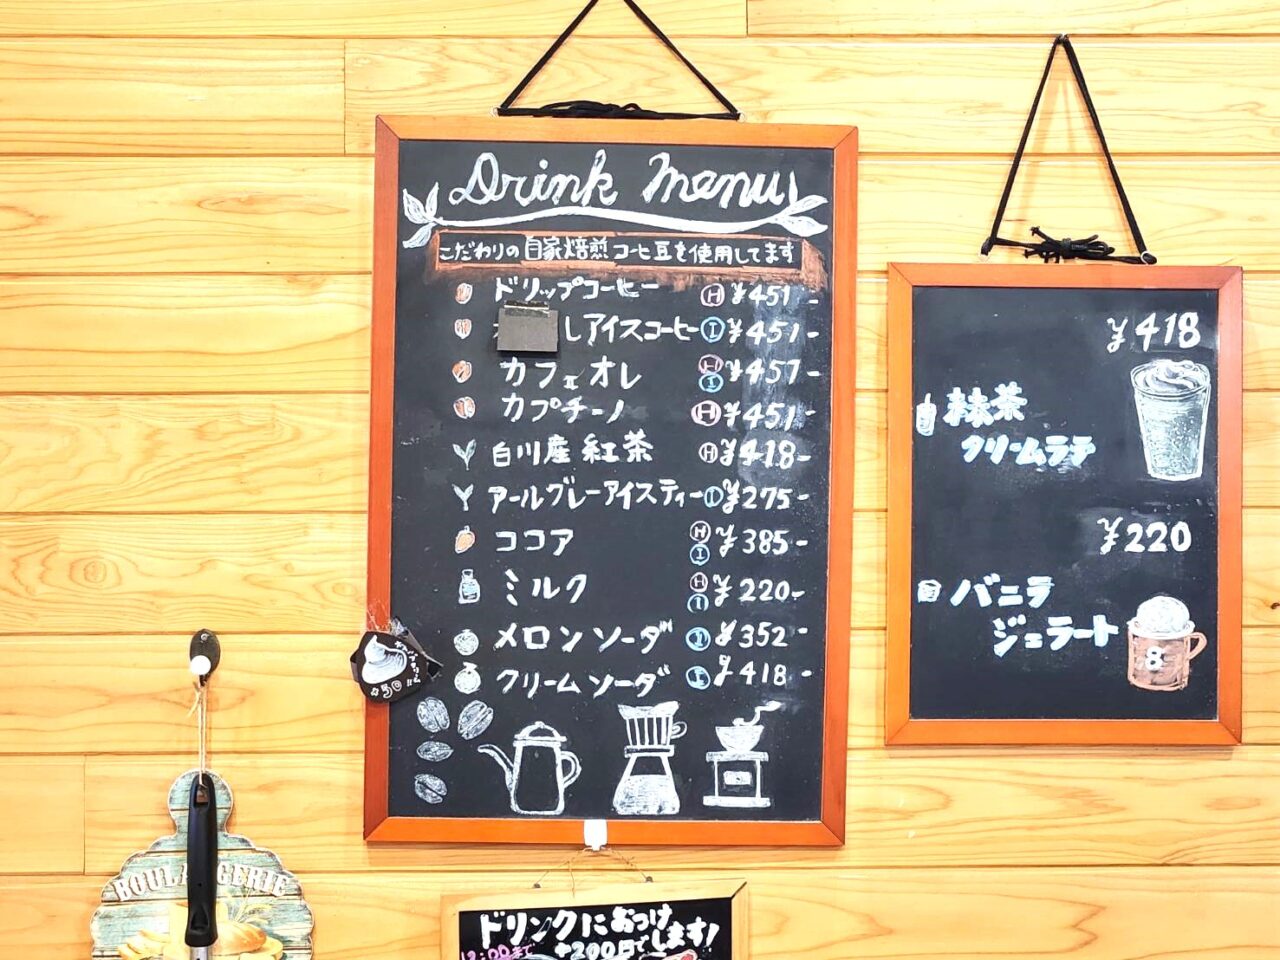 Drink Menu
こだわりの自家焙煎コーヒ豆を使用してます
ドリップコーヒー Ⓗ ¥451-
しアイスコーヒー Ⓘ ¥451-
カフェオレ Ⓗ Ⓘ ¥451-
カプチーノ Ⓗ ¥451-
白川産紅茶 Ⓗ ¥418-
アールグレーアイスティー Ⓘ ¥275-
ココア Ⓗ Ⓘ ¥385-
ミルク Ⓗ Ⓘ ¥220-
メロンソーダ Ⓘ ¥352-
クリームソーダ Ⓘ ¥418-
¥50
¥418
抹茶
クリームラテ
¥220
バニラ
ジェラート
8
BOULANGERIE
ドリンクにおつけ
12:00まで +200円でします!